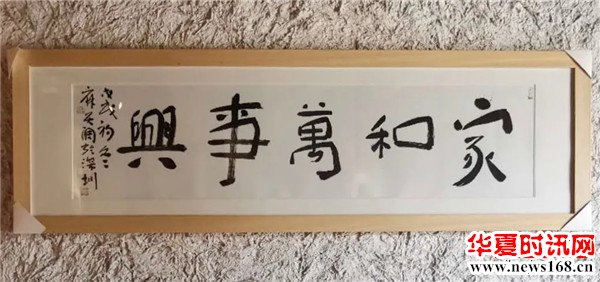 家和萬事興
戊戌
於深圳
华夏时讯网
www.news168.cn